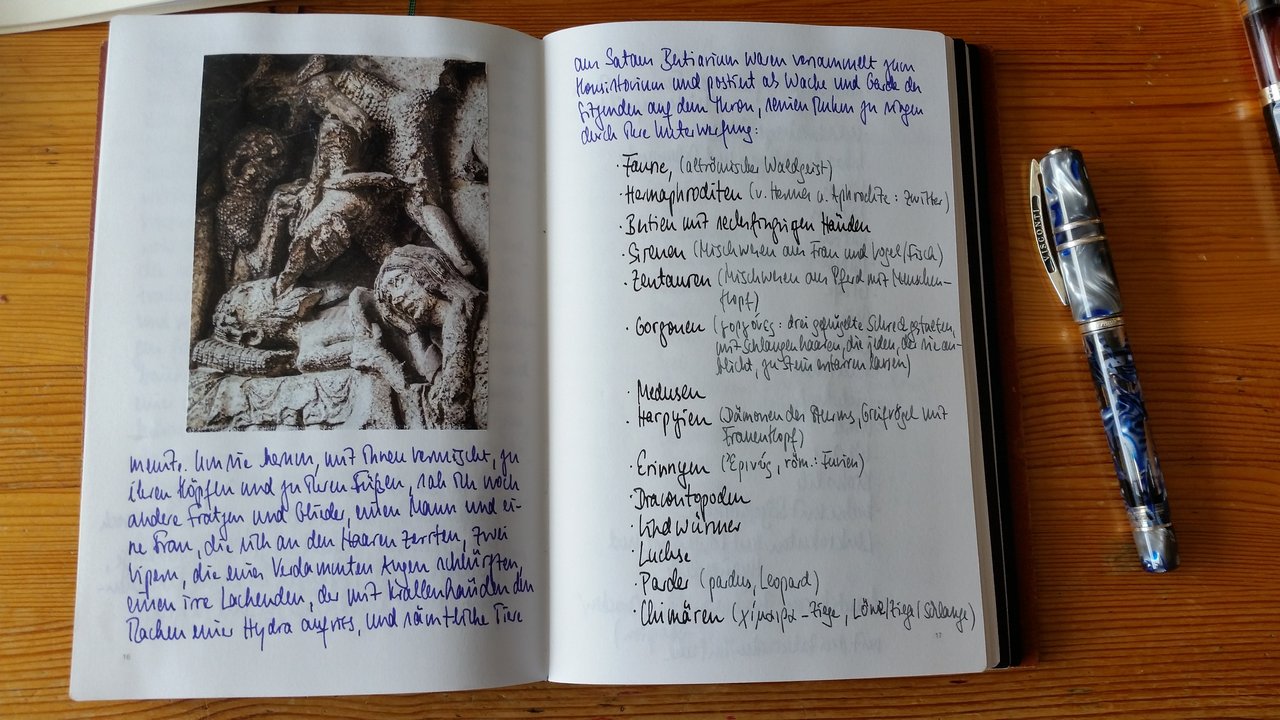 mente. Um sie herum, mit ihnen vermischt, zu
ihren Köpfen und zu ihren Füßen, sah ich noch
andere Fratzen und Glieder, einen Mann und ei-
ne Frau, die sich an den Haaren zerrten, zwei
Vipern, die eines Verdammten Augen schlürften,
einen irre Lachenden, der mit Krallenhänden den
Rachen einer Hydra aufriß, und sämtliche Tiere
16
aus Satans Bestiarium waren versammelt zum
Konsistorium und postiert als Wache und Garde des
Sitzenden auf dem Thron, seinen Ruhm zu singen
durch ihre Unterwerfung:
· Faune, (altrömischer Waldgeist)
· Hermaphroditen (v. Hermes u. Aphrodite: Zwitter)
· Bestien mit sechsfingrigen Händen
· Sirenen (Mischwesen aus Frau und Vogel/Fisch)
· Zentauren (Mischwesen aus Pferd mit Menschen-
kopf)
· Gorgonen (γοργόνες: drei geflügelte Schreckgestalten,
mit Schlangenhaaren, die jeden, der sie an-
blickt, zu Stein erstarren lassen)
· Medusen
· Harpyien (Dämonen des Sturms, Greifvögel mit
Frauenkopf)
· Erinnyen (Ἐρινύς, röm.: Furien)
· Dracontopoden
· Lindwürmer
· Luchse
· Parder (pardus, Leopard)
· Chimären (χίμαιρα - Ziege, Löwe/Ziege/Schlange)
17
VISCONTI